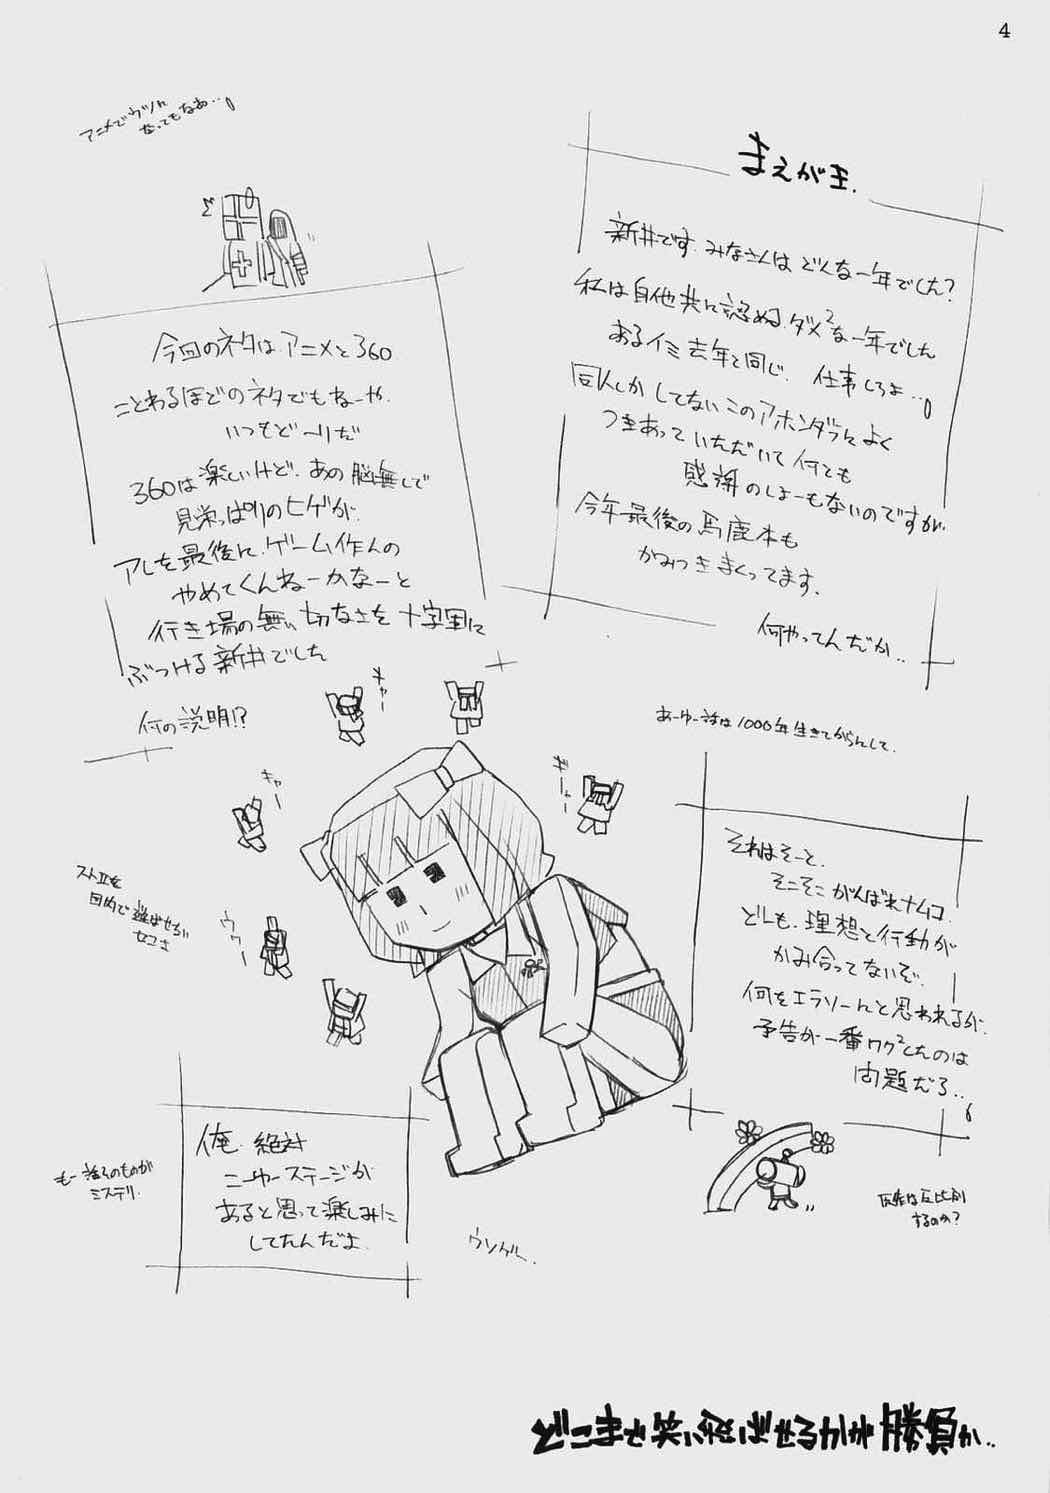 4
まえがき.
新井です. みなさんは どんな一年でした?
私は自他共に認める. ダメ²な一年でした
あるイミ去年と同じ. 仕事しろよ…
同人しか してない このアホンダラに よく
つきあって いただいて 何とも
感謝のしよーもないのですが.
今年最後の馬鹿本も
かみつきまくってます.
何やってんだか..
アニメでウツに
なってもなあ…
今回のネタは アニメと360
ことわるほどのネタでもねーや.
いつもど〜りだ
360は楽しいけど. あの脳無しで
見栄っぱりのヒゲが.
アレを最後に ゲーム作んの
やめてくんねーかなーと
行き場の無い切なさを 十字軍に
ぶつける新井でした
何の説明!?
キャー
キャー
ギャー
ウワー
あーゆー詩は1000年生きてからんして.
それはそーと.
そこそこ がんばれナムコ.
どーも. 理想と行動が
かみ合ってないぞ.
何をエラソーにと思われるが.
予告が一番ワク²したのは
問題だろ..
ストIIを
目的で
もー 話そのものが
ミステリ.
俺. 絶対
ニューステージが
あると思って楽しみに
してたんだよ.
ウソゲー..
反比例
するのか?
どこまで笑い飛ばせるかが勝負か..